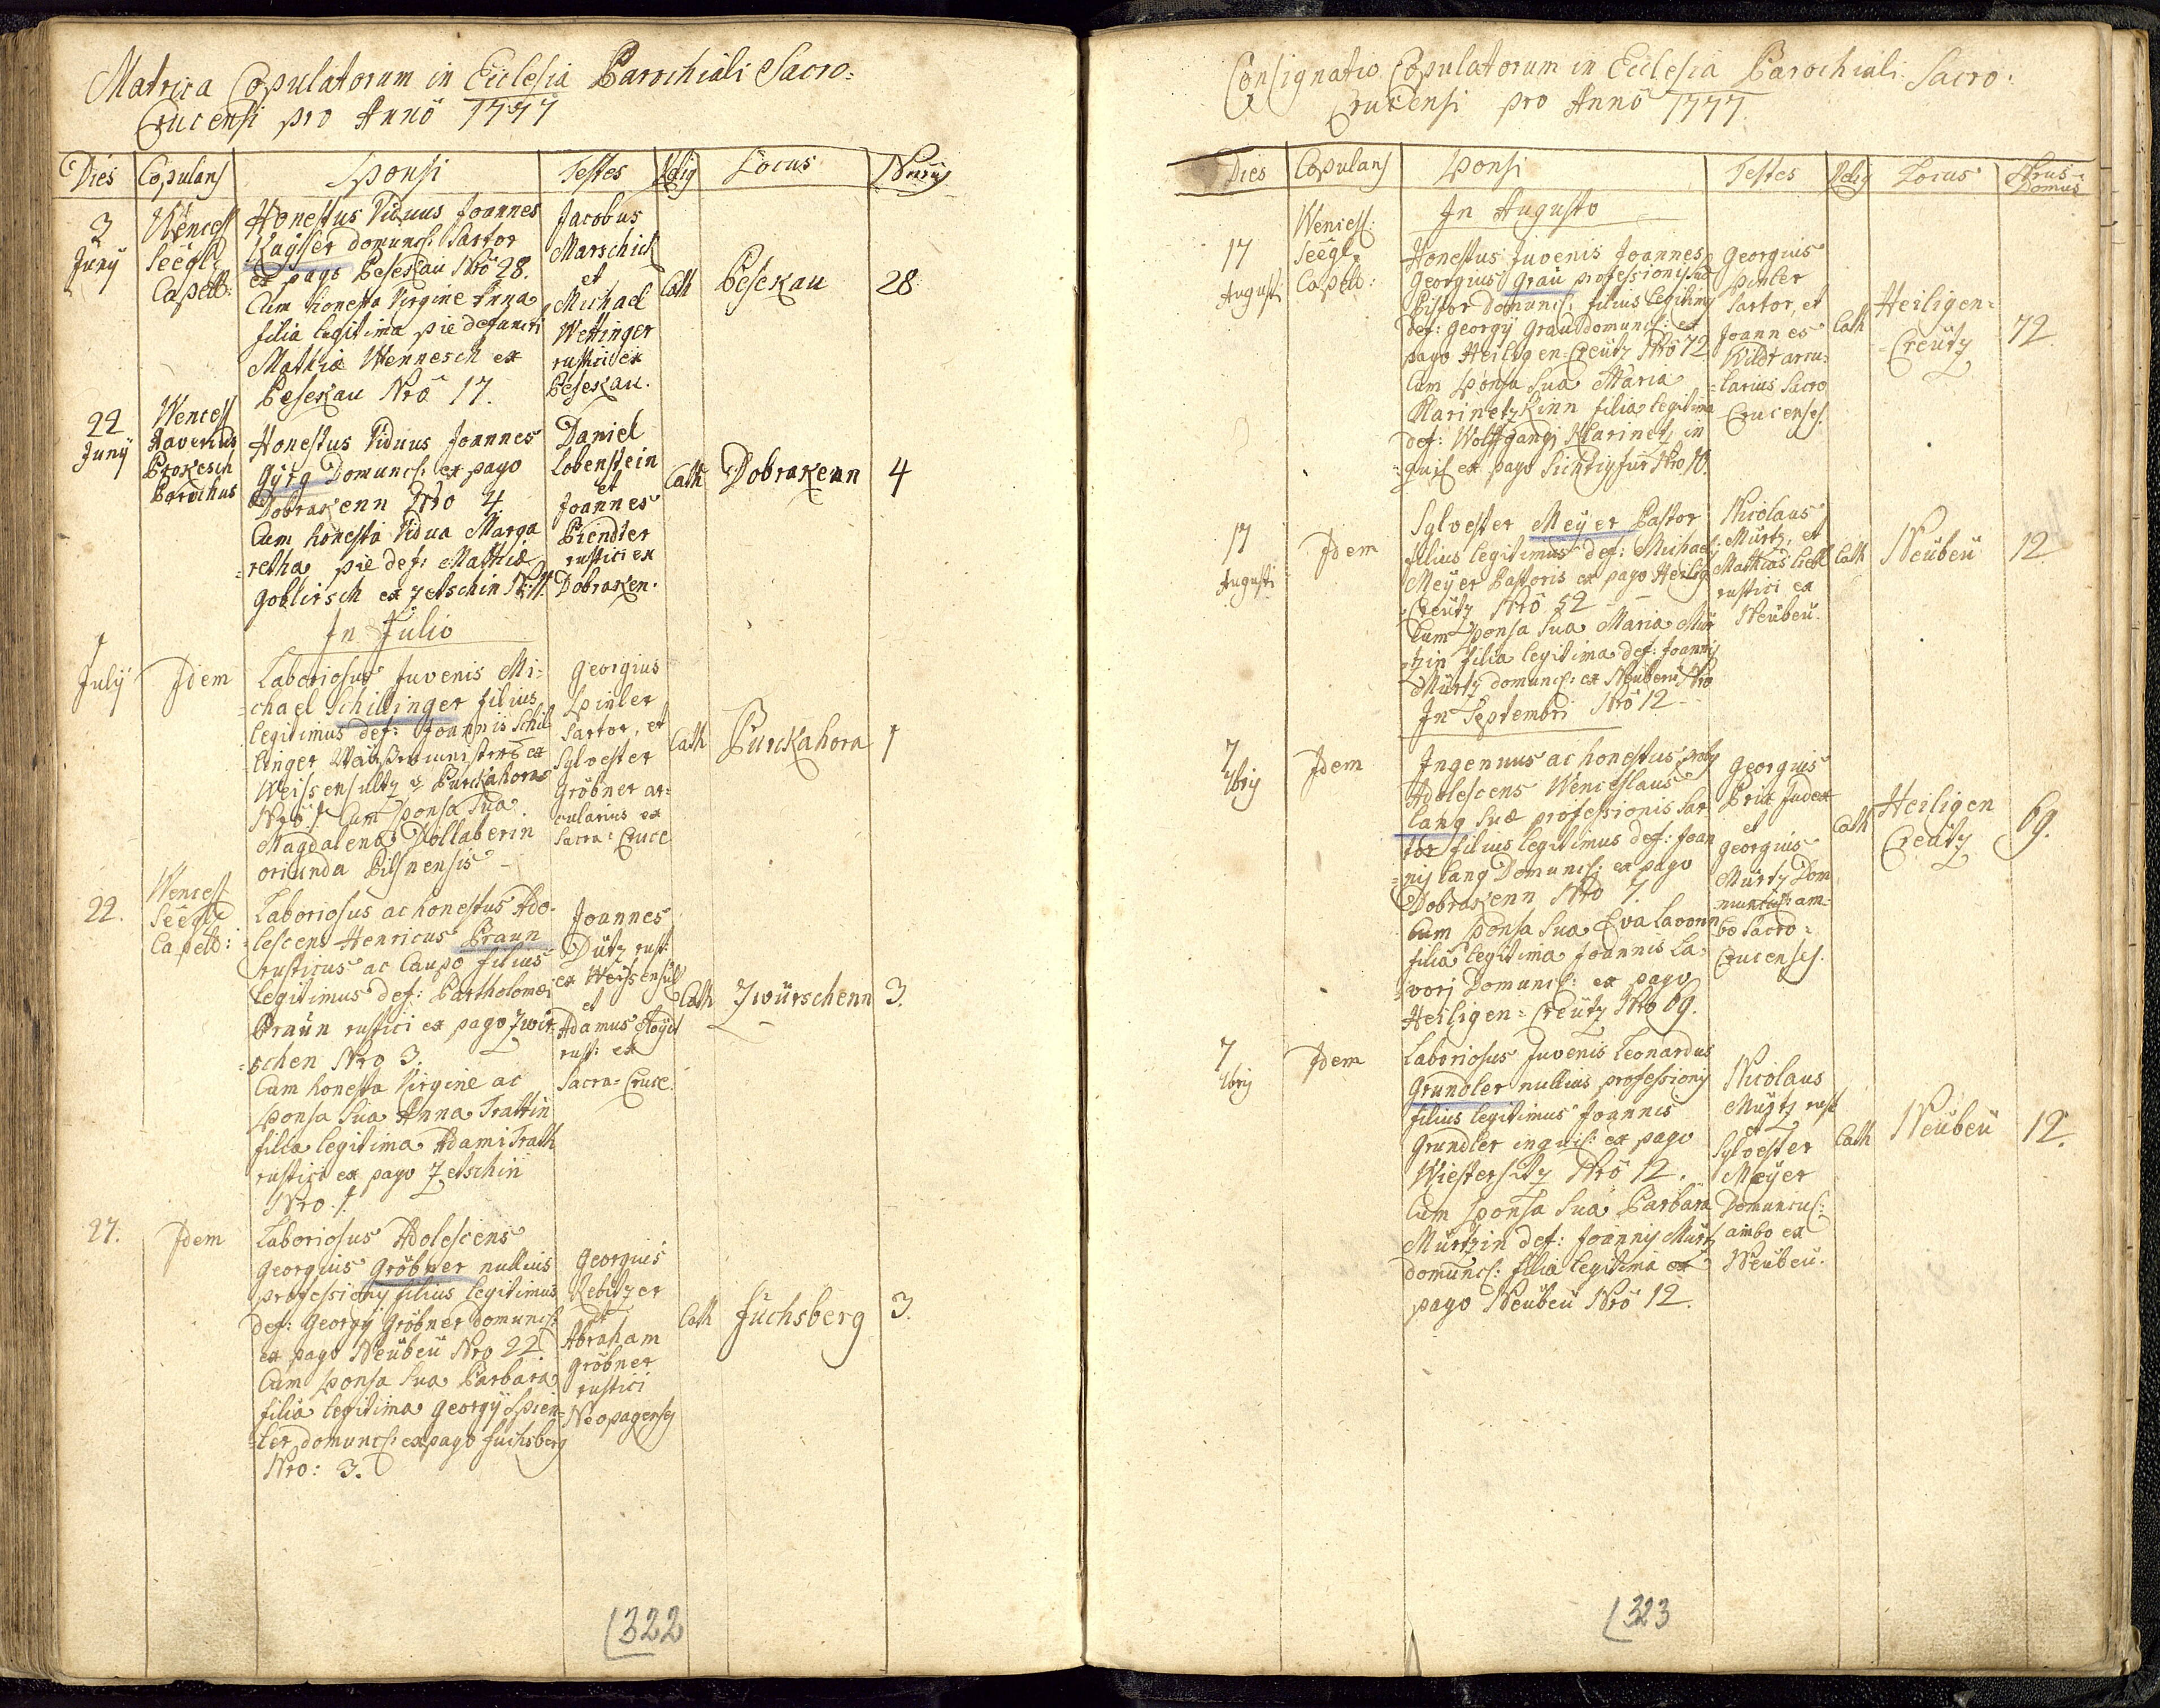 Matrica Copulatorum in Ecclesia Parochiali Sacro:
Crucensi pro Anno 1777
Dies Copulans Sponsi Testes Relig Locus Nrus
3 Juny
Wencesl
Seegl
Capell:
Honestus Viduus Joannes
Kayser domuncl: Sartor
ex pago Pesekau Nro 28.
Cum honesta Virgine Anna
filia legitima pie defuncti
Mathiæ Wennesch ex
Pesekau Nro 17.
Jacobus
Marschick
et
Michael
Wettinger
rustici ex
Pesekau.
Cath Pesekau 28
22
Juny
Wencesl
Xaverius
Prokesch
Parochus
Honestus Viduus Joannes
Gyrg Domuncl: ex pago
Dobrakenn Nro 4.
Cum honesta Vidua Marga
=retha pie def: Mathiæ
Goblirsch ex Zetschin
Daniel
Lobenstein
et
Joannes
Piendter
rustici ex
Dobraken.
Cath Dobrakenn 4
In Julio
1
July
Idem
Laboriosus Juvenis Mi:
=chael Schillinger filius
legitimus def: Joannis Schil
=linger ex
Weissensultz Purckahora
Nro 1. Cum Sponsa Sua
Magdalena Vollaberin
oriunda Pilsnensis
Georgius
Spinler
Sartor, et
Sylvester
Gröbner ar=
cularius ex
Sacra=Cruce
Cath Purckahora 1
22.
Wencesl
Seegl
Capell:
Laboriosus ac honestus Ado=
=lescens Henricus Praun
rusticus ac Caupo filius
legitimus def: Bartholomæi
Praun rustici ex pago Zwir
=schen Nro 3.
Cum honesta Virgine ac
Sponsa Sua Anna Trattin
filia legitima Adami Trath
rustici ex pago Zetschin
Nro 1.
Joannes
Dütz rust:
ex Weissensul
et
Adamus
rust: ex
Sacra=Cruce.
Cath Zwürschenn 3.
27.
Idem
Laboriosus Adolescens
Georgius Gröbner nullius
professionis filius legitimus
def: Georgy Gröbner domuncl:
ex pago Neübeü Nro 22
Cum Sponsa Sua Barbara
filia legitima Georgy Spien=
=ler domuncl: ex pago Fuchsberg
Nro: 3.
Georgius
Rebitzer
et
Abraham
Gröbner
rustici
Neopagenses
Cath Fuchsberg 3.
322
Consignatio Copulatorum in Ecclesia Parochiali Sacro:
Crucensi pro Anno 1777.
Dies Copulans Sponsi Testes Relig Locus Nrus Domus
In Augusto
17
Augusti
Wencesl:
Seegl
Capell:
Honestus Juvenis Joannes
Georgius Grau professionis suæ
Pistor Domuncl: filius legitimus
def: Georgy Grau domuncl: ex
pago Heiligen=Creütz Nro 72
Cum Sponsa Sua Maria
Klarinetzkinn filia legitima
def: Wolffgangi Klarinetz in
=quil ex pago Sichtigfur Nro 10.
Georgius
Spinler
Sartor, et
Joannes
Wildt arcu:
=larius Sacro
Crucenses.
Cath Heiligen=
Creütz 72.
17
Augusti
Idem
Sylvester Meÿer Pastor
filius legitimus def: Michaely
Meÿer Pastoris ex pago Heilig
Creütz Nro 52
Cum Sponsa Sua Maria Mür
=tzin filia legitima def: Joannis
Mürtz domuncl: ex Neübeü Nro
Nro 12
Nicolaus
Mürtz, et
Mathias Liebl
rustici ex
Neübeü.
Cath Neübeü 12
In Septembri
7
7bris
Idem
Ingenuus ac honestus
Adolescens Wenceslaus
Lang Suæ professionis Sar
tor filius legitimus def: Joan
=nis Lang Domuncl: ex pago
Dobrakenn Nro 7.
Cum Sponsa Sua Eva
filia legitima Joannis La=
=vori Domuncl: ex pago
Heiligen=Creütz Nro 69.
Georgius
Prix Judex
et
Georgius
Mürtz Dom
am=
bo Sacro=
Crucenses.
Cath Heiligen
Creütz 69.
7
7bris
Idem
Laboriosus Juvenis Leonardus
Grundler nullius professionis
filius legitimus Joannis
Grundler inquil: ex pago
Wiestersitz Nro 12.
Cum Sponsa Sua Barbara
Mürtzin def: Joannis Mürtz
domuncl: filia legitima ex
pago Neübeü Nro 12.
Nicolaus
Mürtz rust
et
Sylvester
Meÿer
Domuncul:
ambo ex
Neübeü.
Cath Neübeü 12.
323